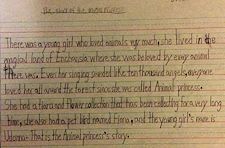 The story of the Animal Princess
There was a young girl who loved animals very much, she lived in the
magical land of Enchansia where she was beloved by every animal
there was. Even her singing sounded like ten thousand angels, everyone
loved her all around the forest since she was called Animal princess.
She had a flora and flower collection that has been collecting for a very long
time, she also had a pet bird named Fiona, and the young girl's name is
Udonna. That is the Animal princess's story.